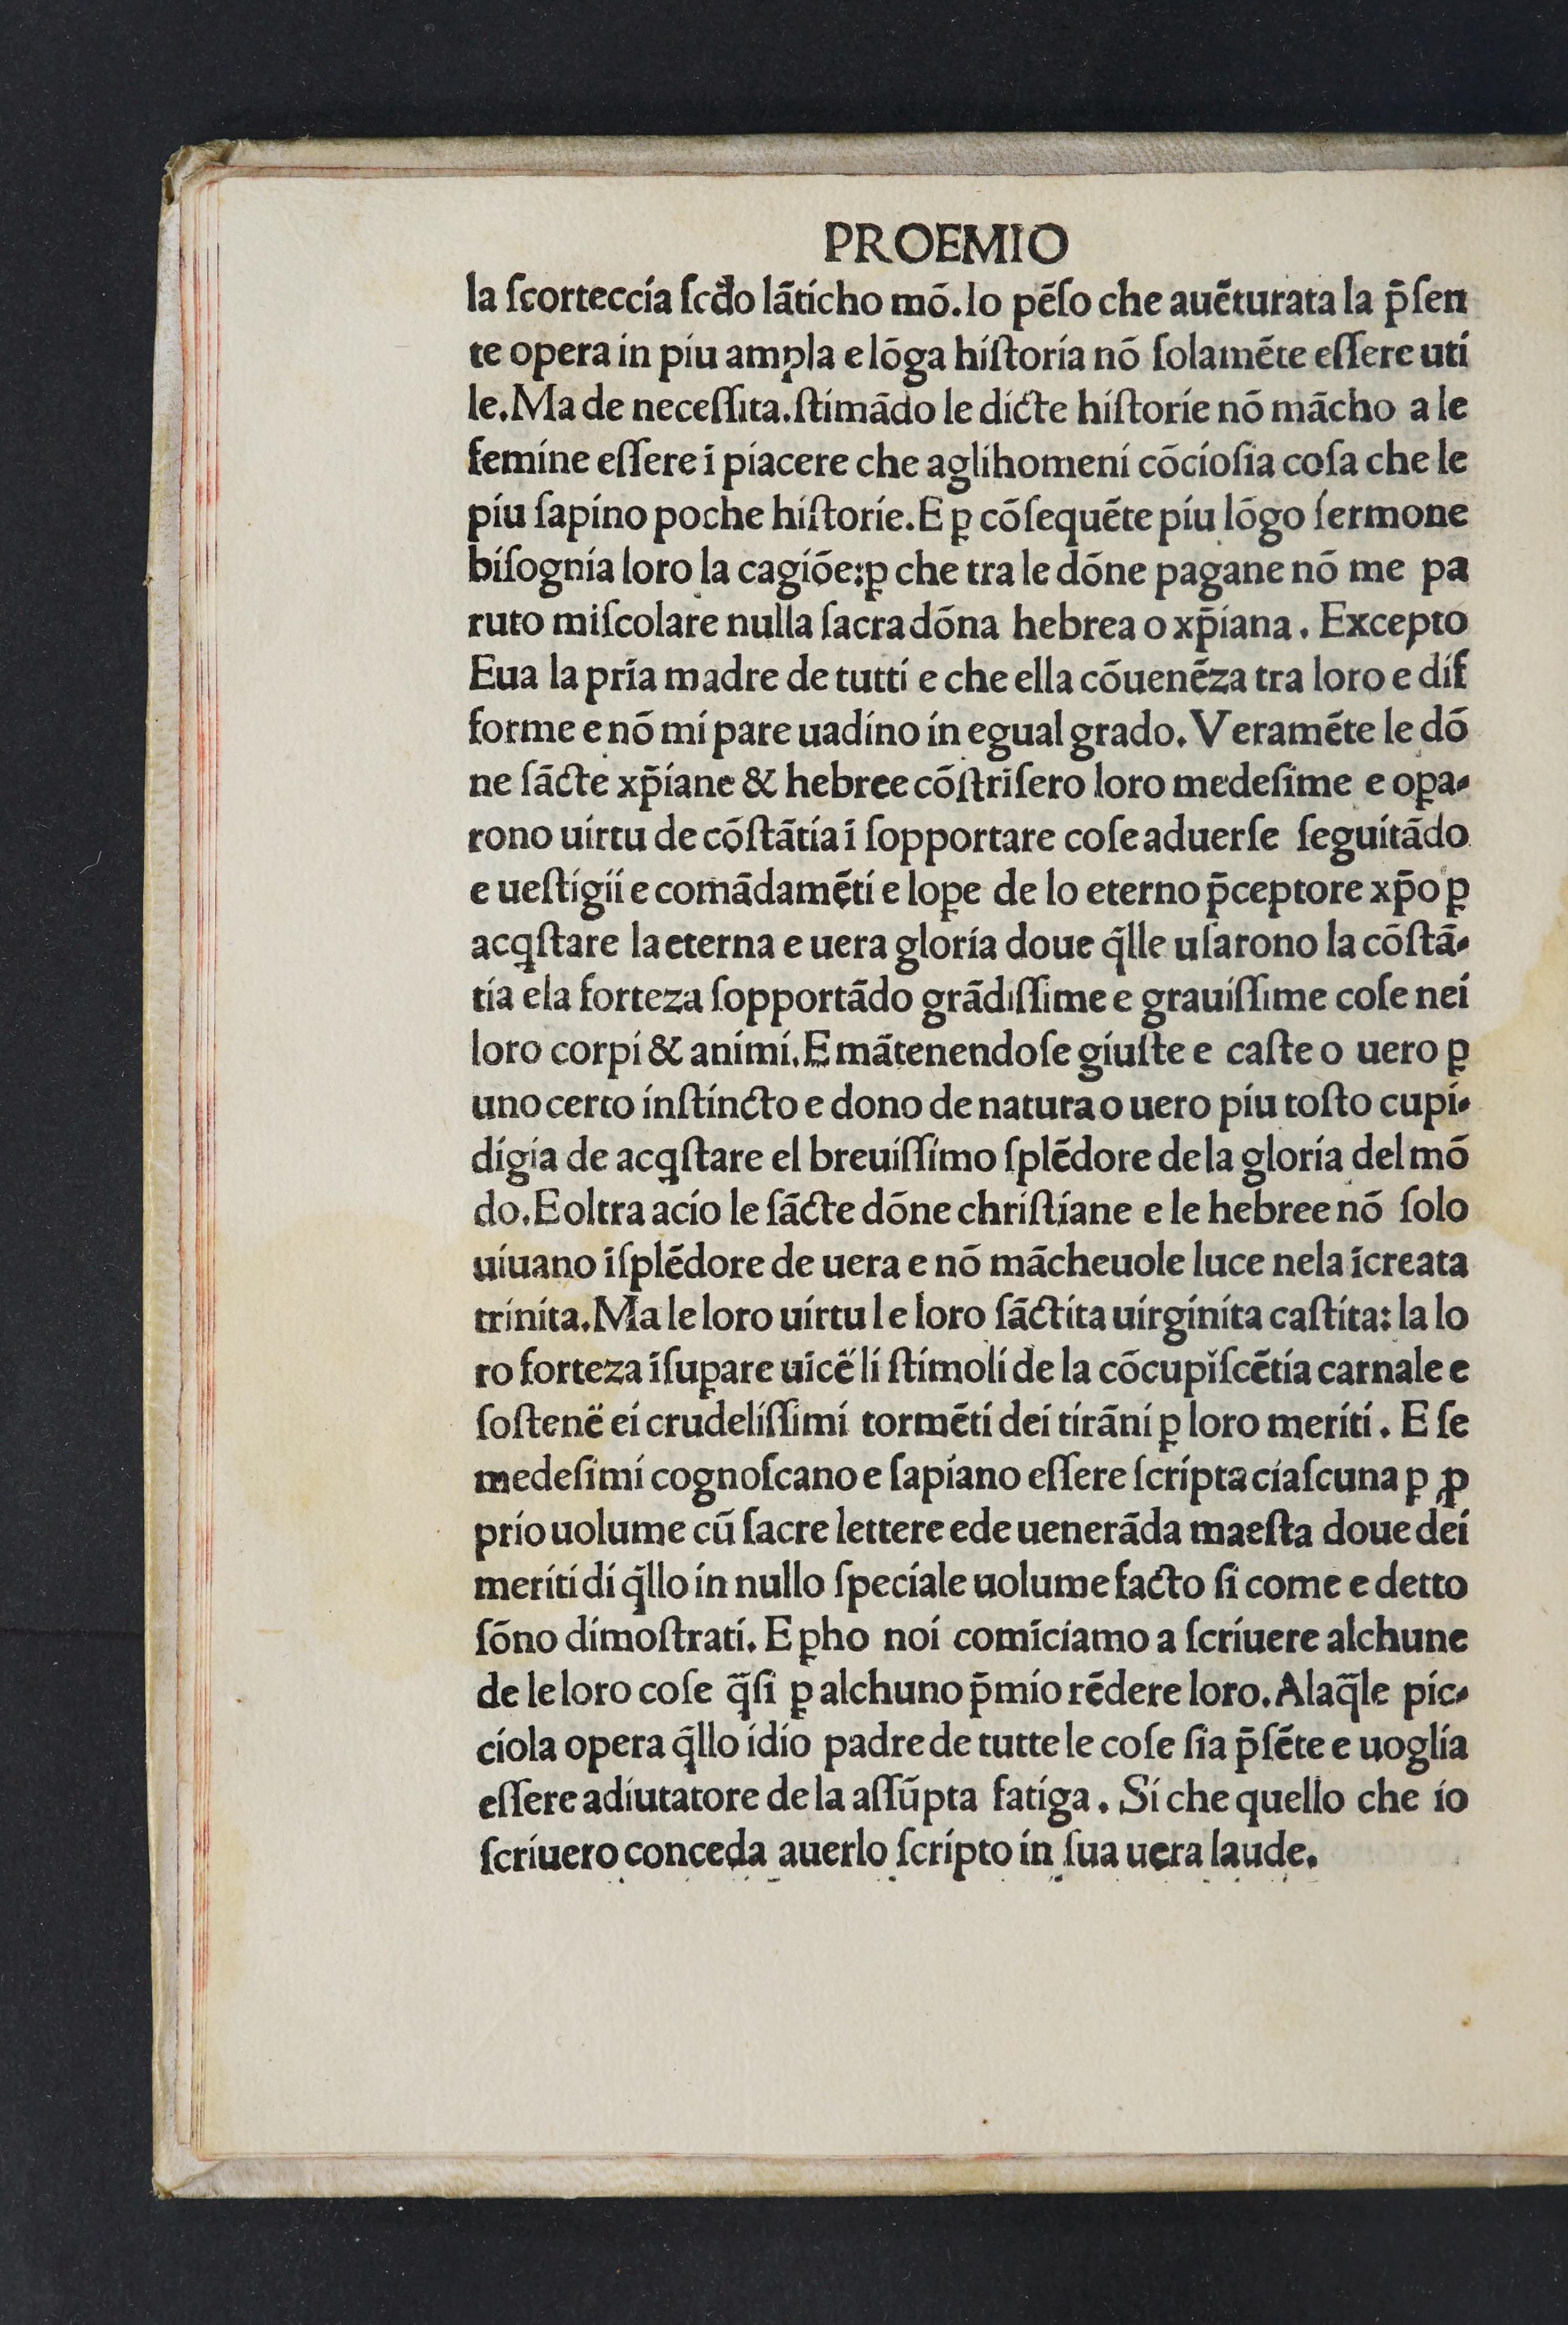 PROEMIO
la ſcorteccia ſcđo lāticho mō.Io pēſo che auēturata la p̄ſen
te opera in piu ampla e lōga hiſtoria nō ſolamēte eſſere uti
le.Ma de neceſſita.ſtimādo le dicte hiſtorie nō mācho a le
femine eſſere ī piacere che aglihomeni cōcioſia coſa che le
piu ſapino poche hiſtorie.E ꝑ cōſequēte piu lōgo ſermone
biſognia loro la cagiōe:ꝑ che tra le dōne pagane nō me pa
ruto miſcolare nulla ſacra dōna hebrea o xp̄iana. Excepto
Eua la pria madre de tutti e che ella cōuenēza tra loro e dif
forme e nō mi pare uadino in egual grado. Veramēte le dō
ne ſācte xp̄iane & hebree cōſtriſero loro medeſime e oꝑa-
rono uirtu de cōſtātia ī ſopportare coſe aduerſe ſeguitādo
e ueſtigii e comādamēti e loꝑe de lo eterno p̄ceptore xp̄o ꝑ
acqſtare la eterna e uera gloria doue q̄lle uſarono la cōſtā-
tia ela forteza ſopportādo grādiſſime e grauiſſime coſe nei
loro corpi & animi.E mātenendoſe giuſte e caſte o uero ꝑ
uno certo inſtincto e dono de natura o uero piu toſto cupi-
digia de acqſtare el breuiſſimo ſplēdore de la gloria del mō
do.E oltra acio le ſācte dōne chriſtiane e le hebree nō ſolo
uiuano īſplēdore de uera e nō mācheuole luce nela īcreata
trinita.Ma le loro uirtu l e loro ſāctita uirginita caſtita: la lo
ro forteza īſuꝑare uīcē li ſtimoli de la cōcupiſcētia carnale e
ſoſtenē ei crudeliſſimi tormēti dei tirāni ꝑ loro meriti. E ſe
medeſimi cognoſcano e ſapiano eſſere ſcripta ciaſcuna ꝑ ꝓ
prio uolume cū ſacre lettere ede uenerāda maeſta doue dei
meriti di q̄llo in nullo ſpeciale uolume facto ſi come e detto
ſōno dimoſtrati. E ꝑho noi comīciamo a ſcriuere alchune
de le loro coſe q̄ſi ꝑ alchuno p̄mio rēdere loro. Alaq̄le pic-
ciola opera q̄llo idio padre de tutte le coſe ſia p̄ſēte e uoglia
eſſere adiutatore de la aſſūpta fatiga. Si che quello che io
ſcriuero conceda auerlo ſcripto in ſua uera laude.